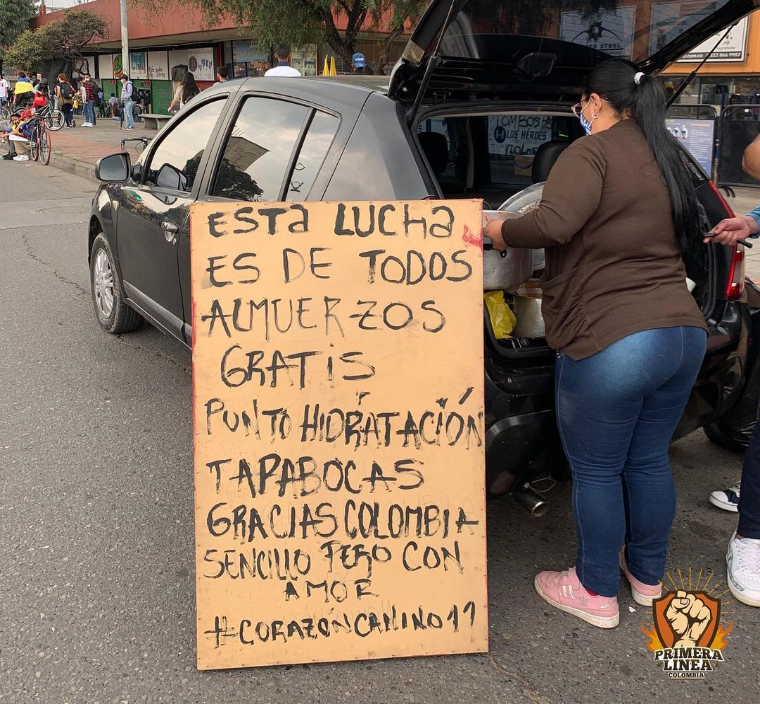 ESTA LUCHA
ES DE TODOS
ALMUERZOS
GRATIS
PUNTO HIDRATACIÓN
TAPABOCAS
GRACIAS COLOMBIA
SENCILLO PERO CON
AMOR
#CORAZÓNCANINO11
PRIMERA
LINEA
COLOMBIA